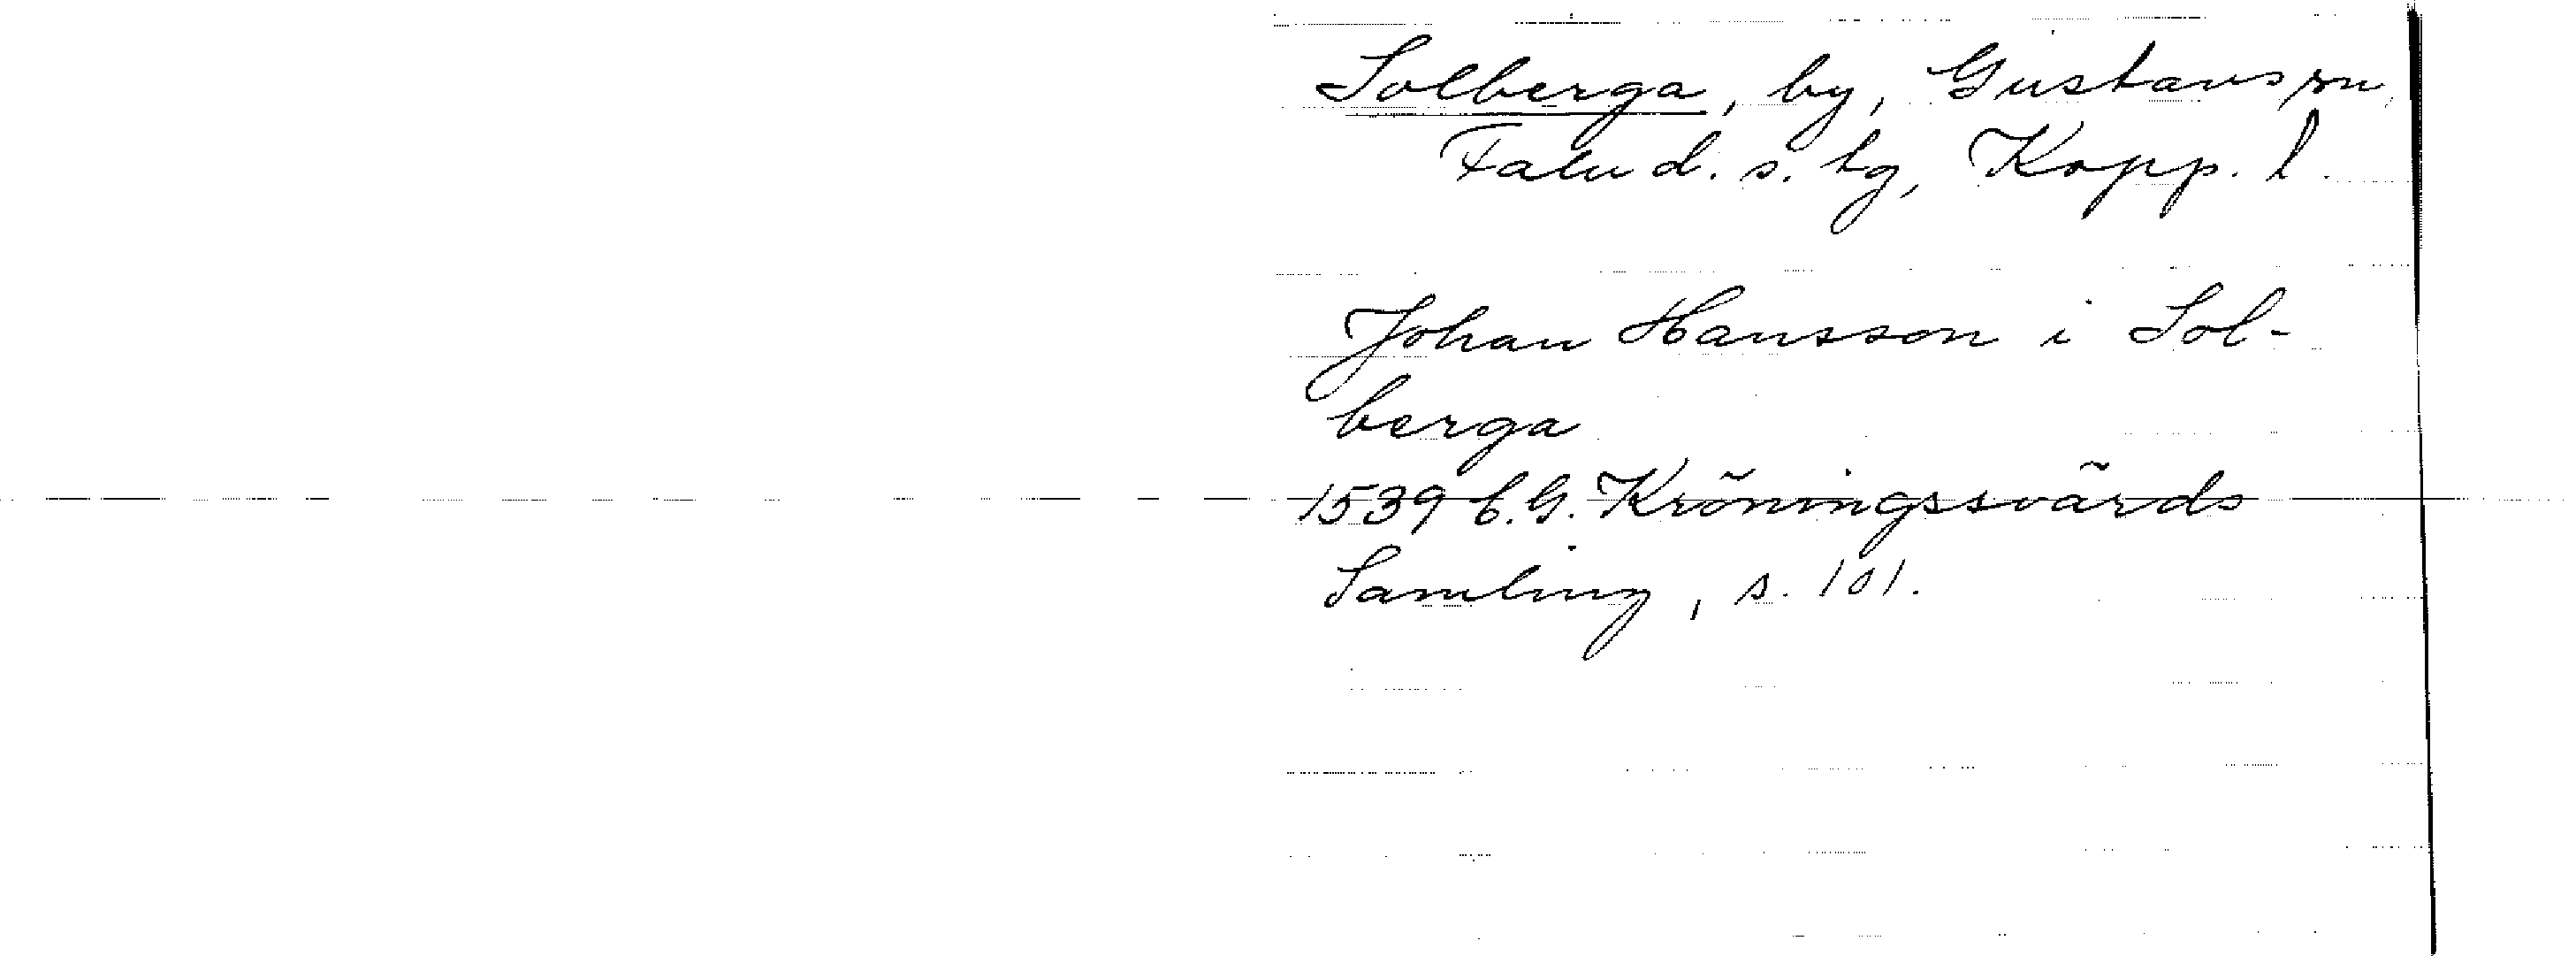 Solberga, by, Gustavs sn,
Falu d. s. tg, Kopp. l.
Johan Hansson i Sol-
berga
1539 C.G. Kröningssvärds
Samling, s. 101.